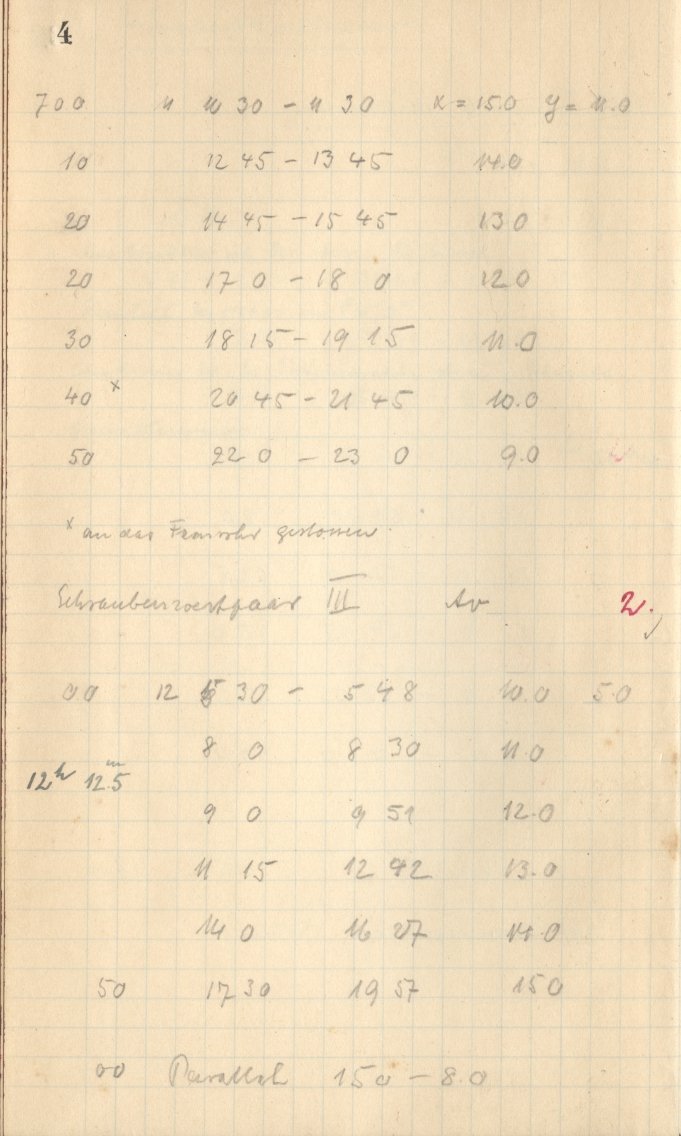 4
700 11 10 30 - 11 30 x = 15.0 y = 11.0
10 12 45 - 13 45 14.0
20 14 45 - 15 45 13 0
20 17 0 - 18 0 12 0
30 18 15 - 19 15 11.0
40 x 20 45 - 21 45 10.0
50 22 0 - 23 0 9.0
x an das Fernrohr gestossen.
Schraubenwertpaar III 2.
00 12 5 30 - 5 48 10.0 5.0
8 0 8 30 11.0
12h 12.5m
9 0 9 51 12.0
11 15 12 42 13.0
14 0 16 27 14.0
50 17 30 19 57 15 0
00 Parallel 15 0 - 8.0